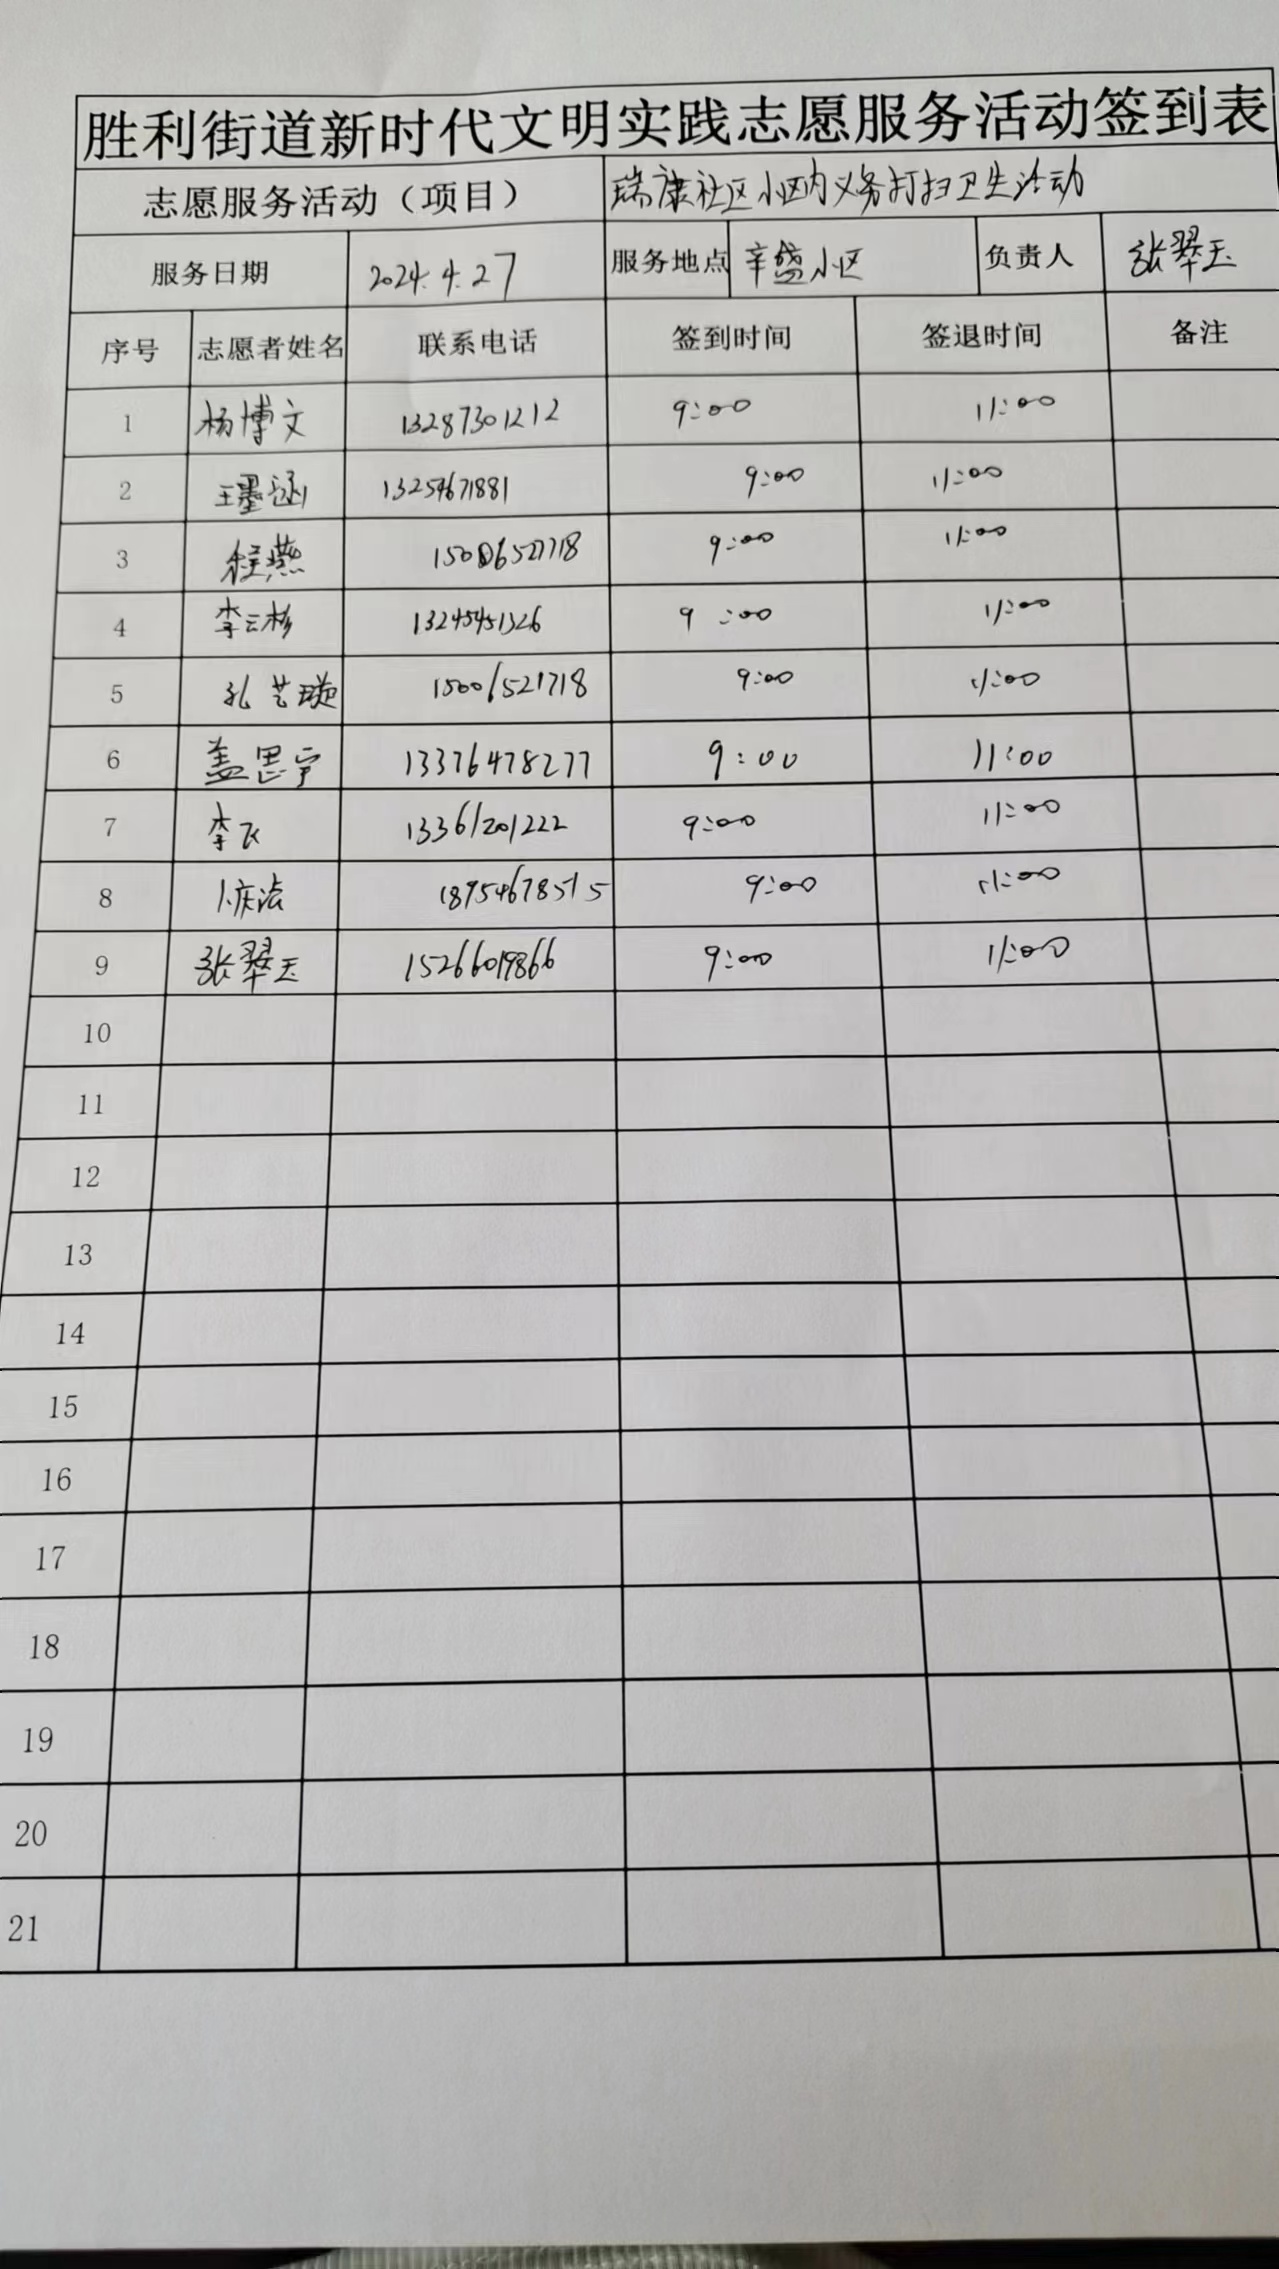 胜利街道新时代文明实践志愿服务活动签到表
志愿服务活动（项目） 瑞康社区小区内义务打扫卫生活动
服务日期 2024.4.27 服务地点 辛盛小区 负责人 张翠玉
序号 志愿者姓名 联系电话 签到时间 签退时间 备注
1 杨博文 13287301212 9:00 11:00
2 王墨涵 13254671881 9:00 11:00
3 程燕 9:00 11:00
4 李云杉 13245451326 9:00 11:00
5 孔艺璇 15006521718 9:00 11:00
6 盖思宇 13376478277 9:00 11:00
7 李飞 13361201222 9:00 11:00
8 18954678515 9:00 11:00
9 张翠玉 15266019866 9:00 11:00
10
11
12
13
14
15
16
17
18
19
20
21